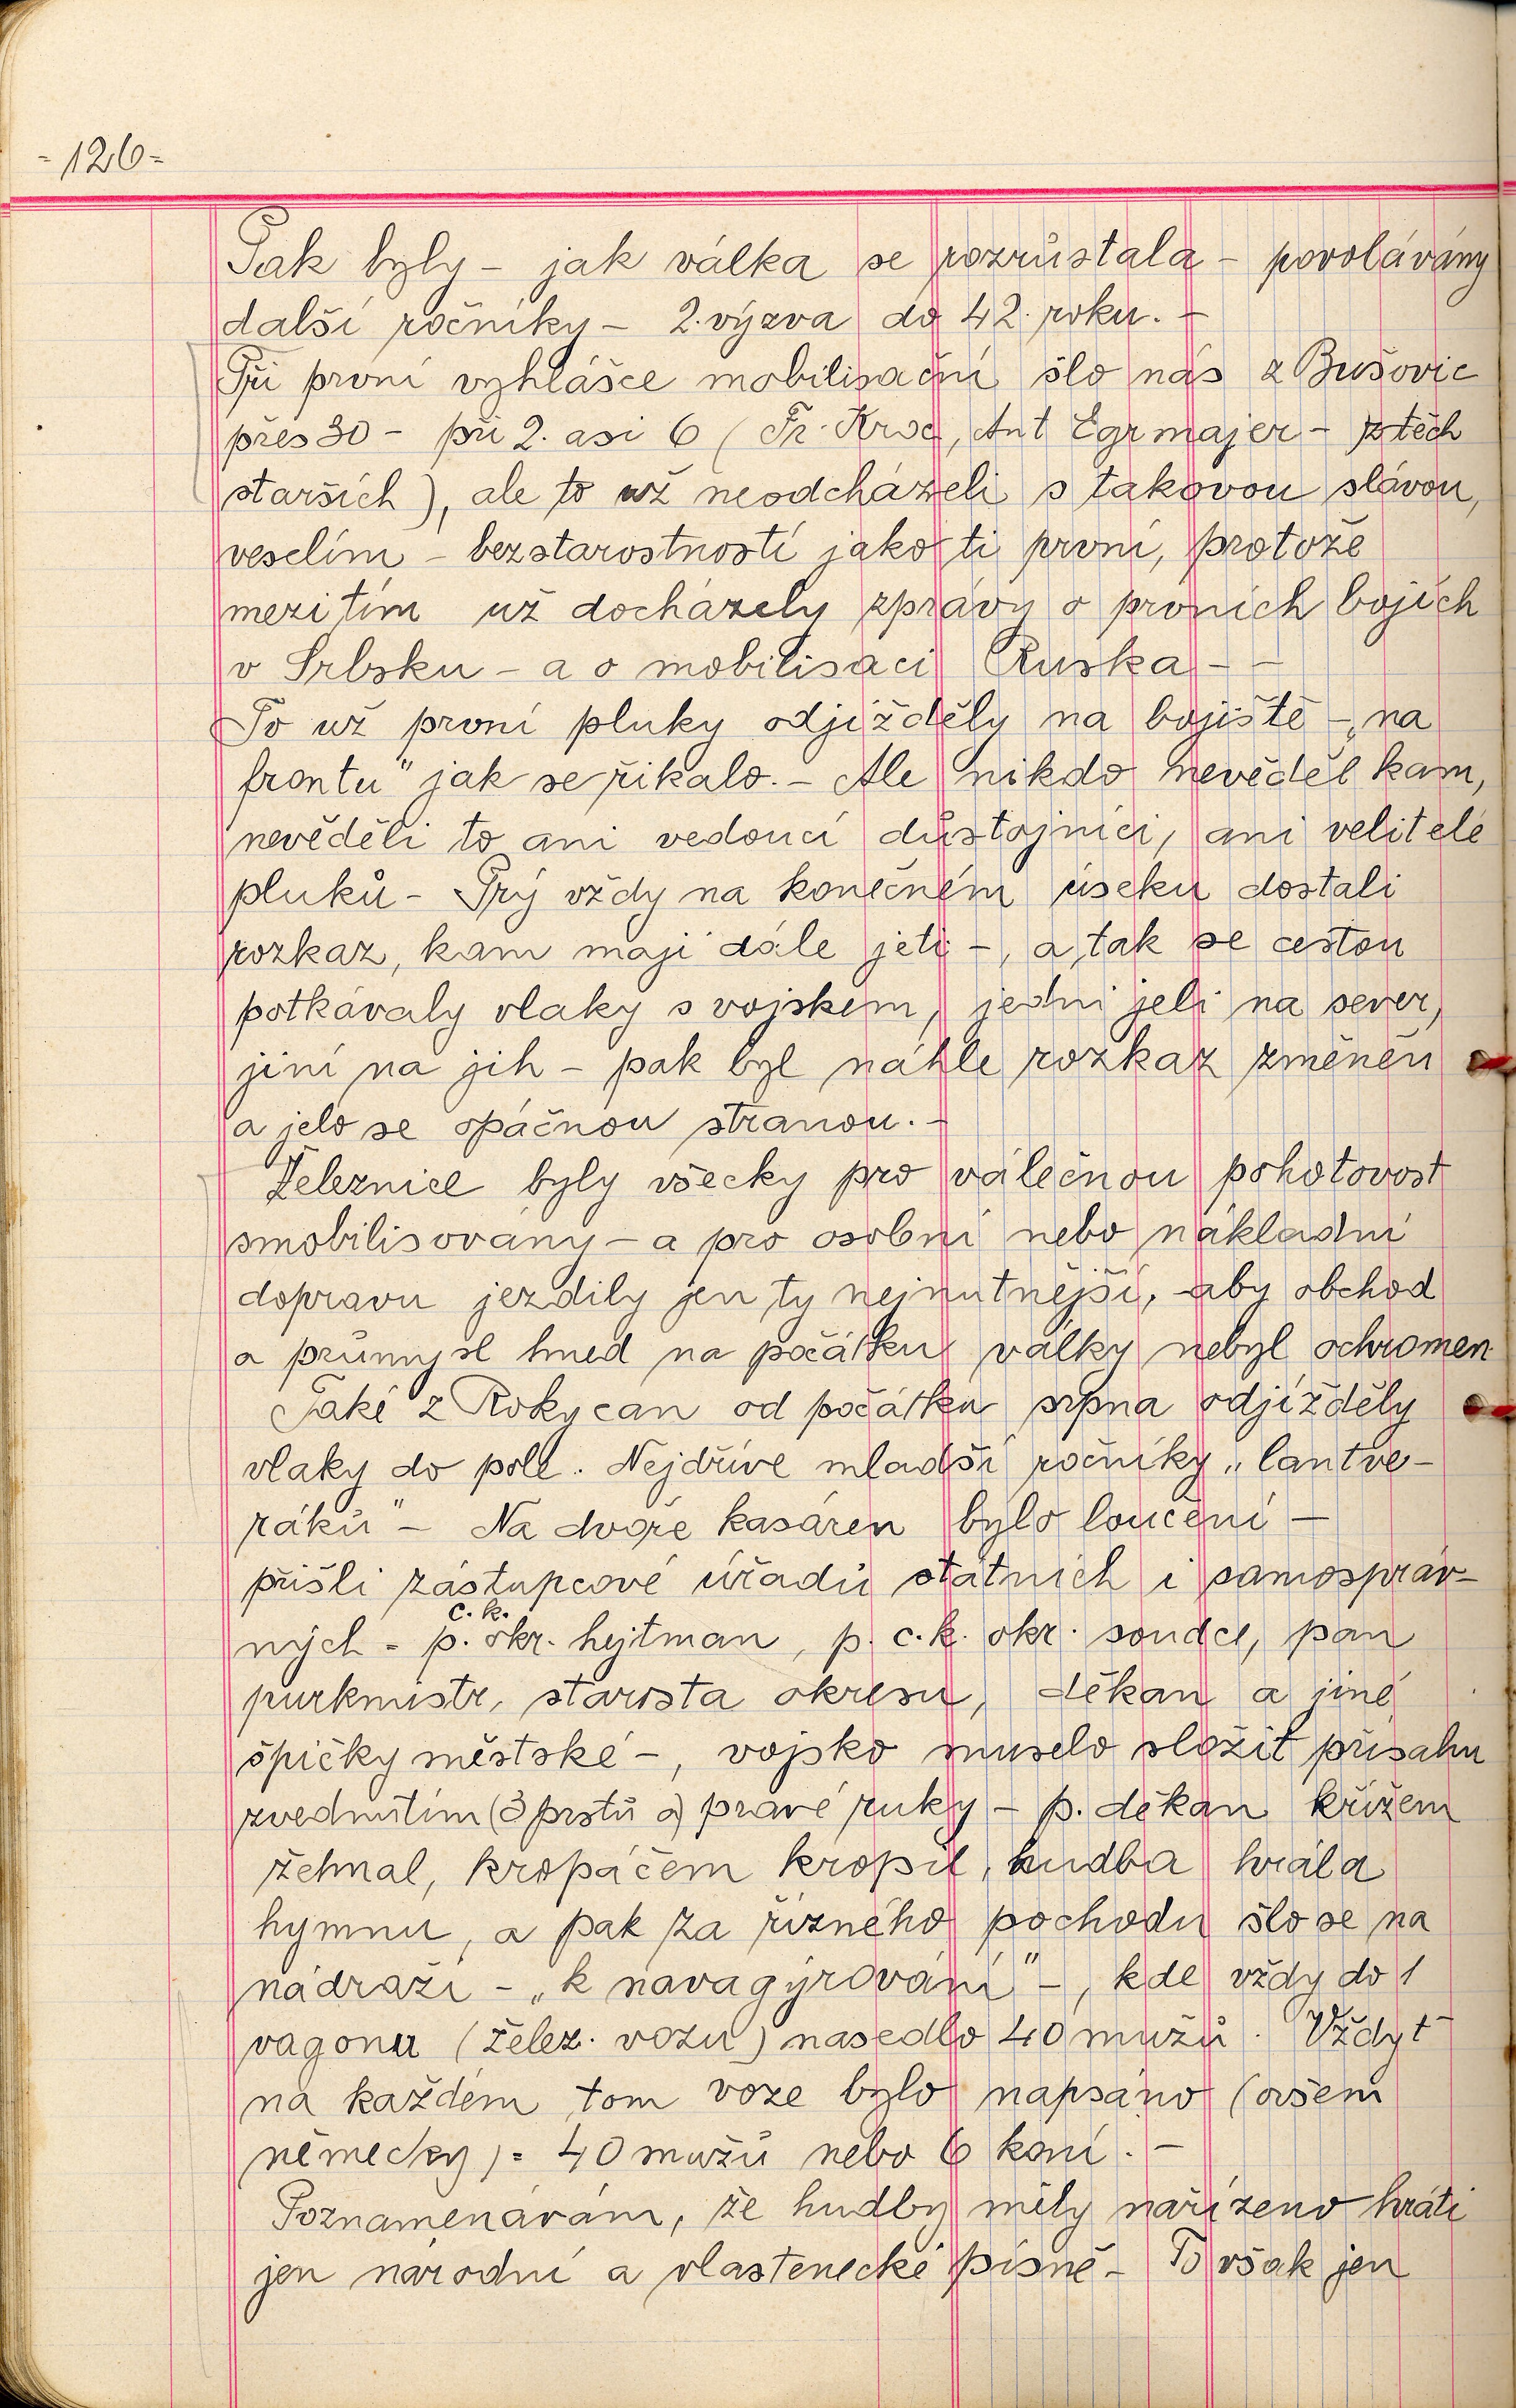 -126-
Tak byly - jak válka se rozrůstala - povolávány
další ročníky - 2. výzva do 42. roku. -
Při první vyhlášce mobilisační šlo nás z Bušovic
přes 30 - při 2. asi 6 (Fr. Kroc, Ant Egrmajer - z těch
starších), ale to už neodcházeli s takovou slávou,
veselím - bezstarostností jako ti první, protože
mezitím už docházely zprávy o prvních bojích
v Srbsku - a o mobilisaci Ruska - -
To už první pluky odjížděly na bojiště - „na
frontu" jak se říkalo. - Ale nikdo nevěděl kam,
nevěděli to ani vedoucí důstojníci, ani velitelé
pluků - Prý vždy na konečném úseku dostali
rozkaz, kam mají dále jeti -, a tak se cestou
potkávaly vlaky s vojskem, jedni jeli na sever,
jiní na jih - pak byl náhle rozkaz změněn
a jelo se opáčnou stranou. -
Železnice byly všecky pro válečnou pohotovost
smobilisovány - a pro osobní nebo nákladní
dopravu jezdily jen ty nejnutnější, aby obchod
a průmysl hned na počátku války nebyl ochromen.
Také z Rokycan od počátku srpna odjížděly
vlaky do pole. Nejdříve mladší ročníky „lantve-
ráků" - Na dvoře kasáren bylo loučení -
přišli zástupcové úřadů státních i samospráv-
ných - p. c.k. okr. hejtman, p. c.k. okr. soudce, pan
purkmistr, starosta okresu, děkan a jiné
špičky městské -, vojsko muselo složit přísahu
zvednutím (3 prstů a) pravé ruky - p. děkan křížem
žehnal, kropáčem kropil, hudba hrála
hymnu, a pak za řízného pochodu šlo se na
nádraží - „k navagýrování" -, kde vždy do 1
vagonu (želez. vozu) nasedlo 40 mužů. Vždyť
na každém tom voze bylo napsáno (ovšem
německy) = 40 mužů nebo 6 koní. -
Poznamenávám, že hudby měly nařízeno hráti
jen národní a vlastenecké písně - To však jen